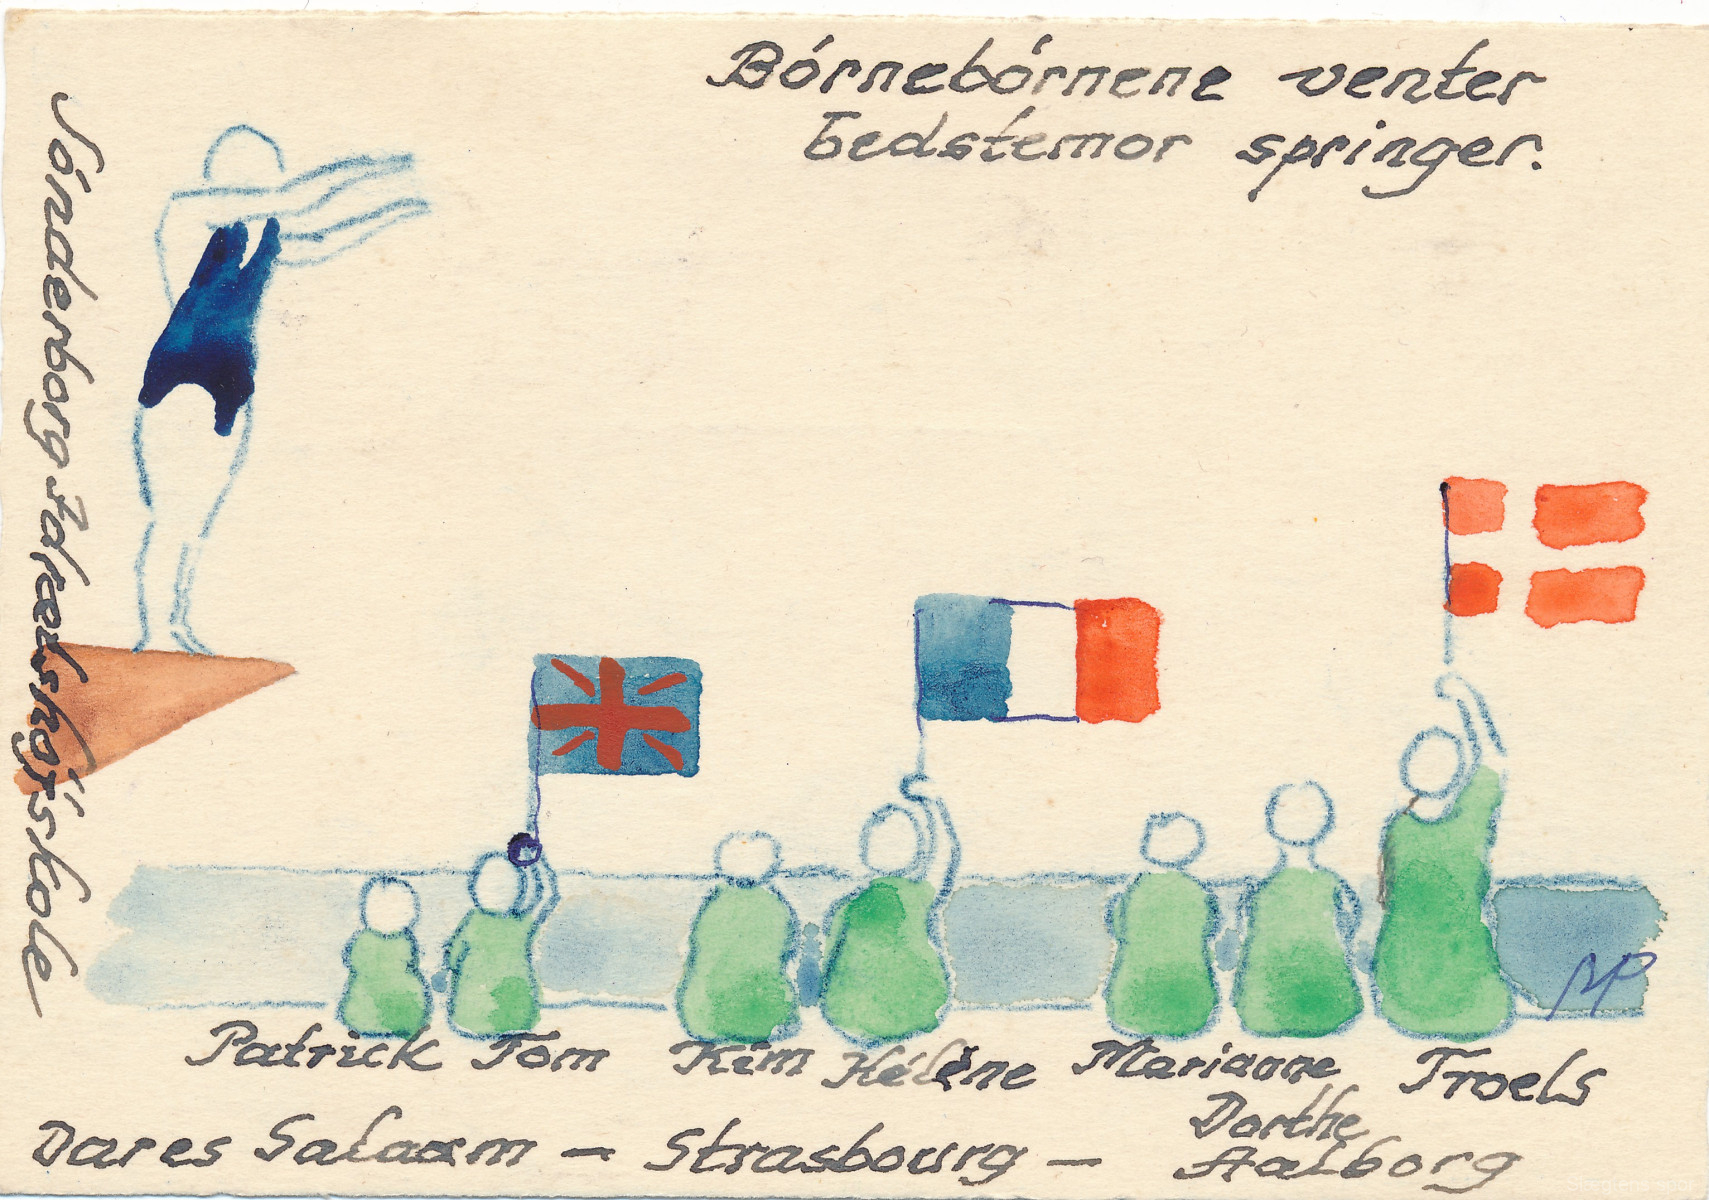 Bórnebórnene venter
bedstemor springer.
Sónderborg Idrætshøjskole
Patrick Tom Kim Héléne Marianne Troels
Dorthe
Dar es Salaam – Strasbourg – Aalborg
MP